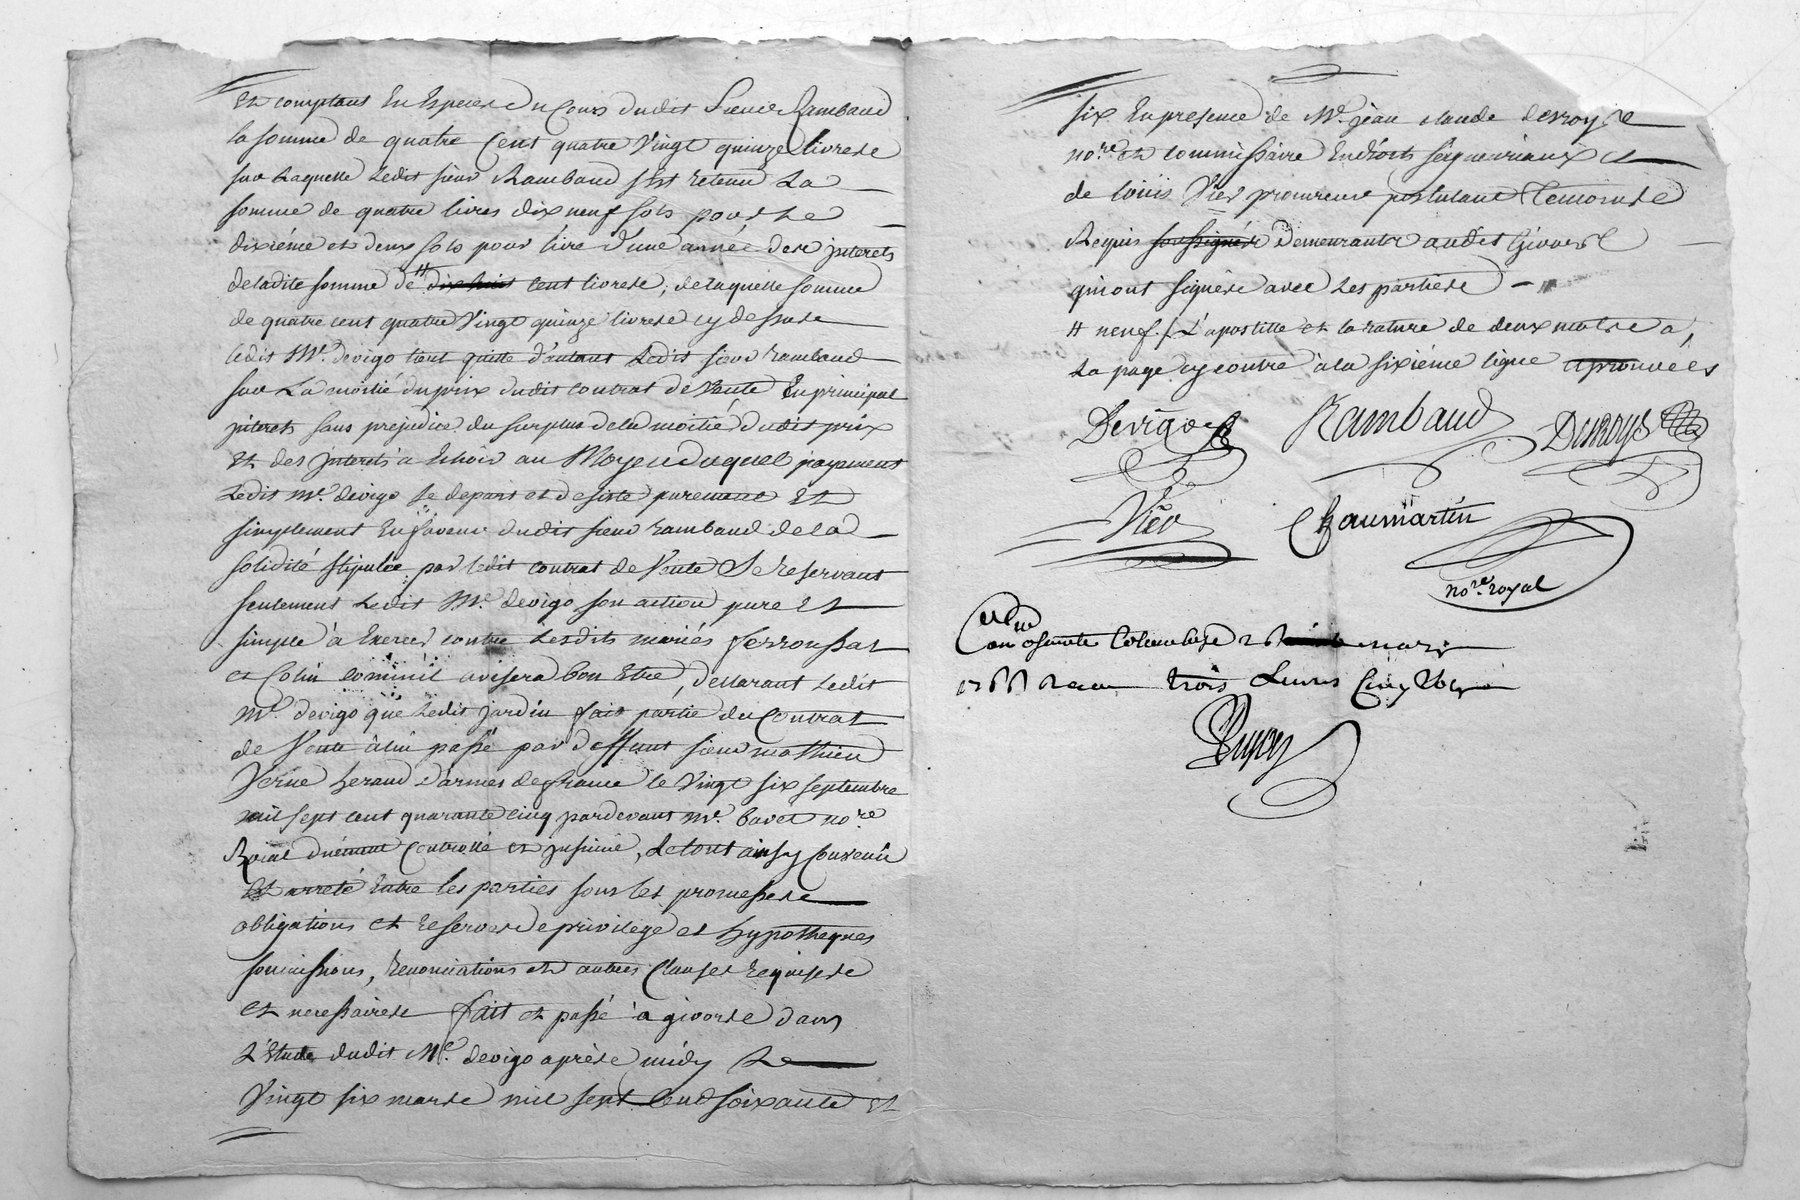 Et comptant En Especes du Cours dudit Sieur Rambaud
la somme de quatre Cent quatre Vingt quinze livres
sur Laquelle Ledit sieur Rambaud s'est retenu La
somme de quatre livres dix neuf sols pour Le
dixiéme et deux sols pour livre d'une année des interets
deladite somme de # dix huit cent livres, de laquelle somme
de quatre cent quatre Vingt quinze livres cy dessus
ledit Me. devigo tient quitte d'autant Ledit sieur rambaud
sur La moitié du prix dudit contrat de Vente En principal
interets sans prejudice du surplus dela moitié dudit prix
Et des Interets a Echoir au Moyen duquel payement
Ledit me. devigo se depart et desiste purement Et
simplement En faveur dudit sieur rambaud de la
solidité stipulée par ledit contrat de Vente Se reservant
seulement Ledit Me. devigo son action pure Et
simple à Exercer contre Lesdits mariés ferroussat
et Colin comm'il avisera bon Etre, déclarant Ledit
Me. devigo que Ledit jardin fait partie du Contrat
de Vente à lui passé par deffunt sieur mathieu
Verne heraud d'armes de france le Vingt six septembre
mil sept cent quarante cinq pardevant Me. bavet nore
Roial duement Controllé et insinué, Le tout ainsy Convenu
Et arreté Entre les parties sous les promesses
obligations et reserves de privilege et hypotheques
soumissions, renonciations et autres Clauses requises
et necessaires fait et passé à givors dans
L'Etude dudit Me. devigo après midy Le
Vingt six mars mil sept Cent soixante Et
six En presence de Me. jean claude desroys
nore et commissaire En droits seigneuriaux et
de louis Vier procureur postulant temoins
Requis soussignés demeurants audit Givors
qui ont signés avec Les parties
# neuf / L'apostille et la rature de deux mots a,
La page cy contre à la sixiéme ligne aprouvées
Devigo Rambaud Desroys
Vier Chaumartin
nore. royal
Colombe mars
1766 Recu trois Livres Cinq
Dupuy